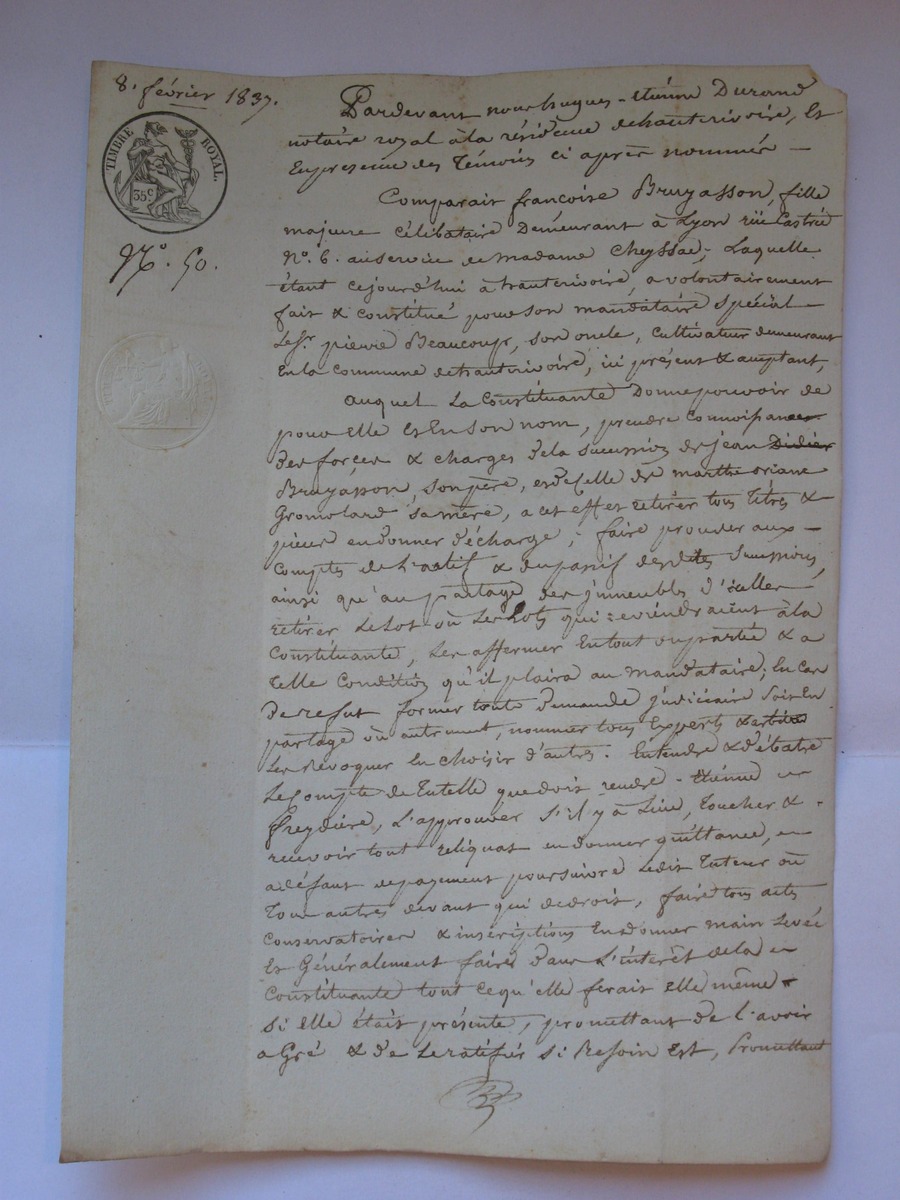 8. février 1837.
TIMBRE ROYAL.
35 C
N.° 50.
Pardevant nous hugues-étiénne Durand
notaire royal à la résidence dehauterivoire, Et
En presence des Témoins ci après nommés —
Comparait françoise Bruyasson, fille
majure célibataire Demeurant à Lyon rüe Castrie
N.° 6. au service de madame Cheyssac, Laquelle
étant cejourd'hui à hauterivoire, a volontairement
fait & constitué pour son mandataire spécial —
Le Sr. pierre Beaucoup, son oncle, Cultivateur demeurant
En la commune dehauterivoire, ici présent & acceptant,
auquel La Constituante Donne pouvoir de
pour Elle Et En Son nom, prendre Connoissance
Des forces & charges De la succession de jean Didier
Bruyasson, son père, et de Celle de marthe oriane
Gromolard sa mère, a cet effet retirer tous titres &
pièces en donner décharge; faire proceder aux —
Comptes de L'actif & du passif des dites Successions,
ainsi qu'au partage des jmmeubles d'icelles
retirer Le Lot où Les Lots qui reviendraient à la
Constituante, Les affermer En tout ou partie & a
telle Condition qu'il plaira au mandataire; En cas
De refus former toute demande judiciaire soit En
partage où autrement, nommer tous Experts & arbitres
Les Révoquer En choisir d'autres. Entendre & débatre
Le Compte de Tutelle que doit rendre étiénne
freydière, L'approuver s'il y à Lieu, Toucher &
recevoir tout reliquat en donner quittance,
a défaut de payement poursuivre Ledit Tuteur où
Tous autres devant qui de droit, faire tous actes
Conservatoires & inscriptions En donner main Levée
Et Généralement faire Dans L'intérêt de la
Constituante tout ce qu'elle ferait elle même
si elle était présente, promettant de l'avoir
a Gré & de Le ratifier si Besoin Est, Promettant